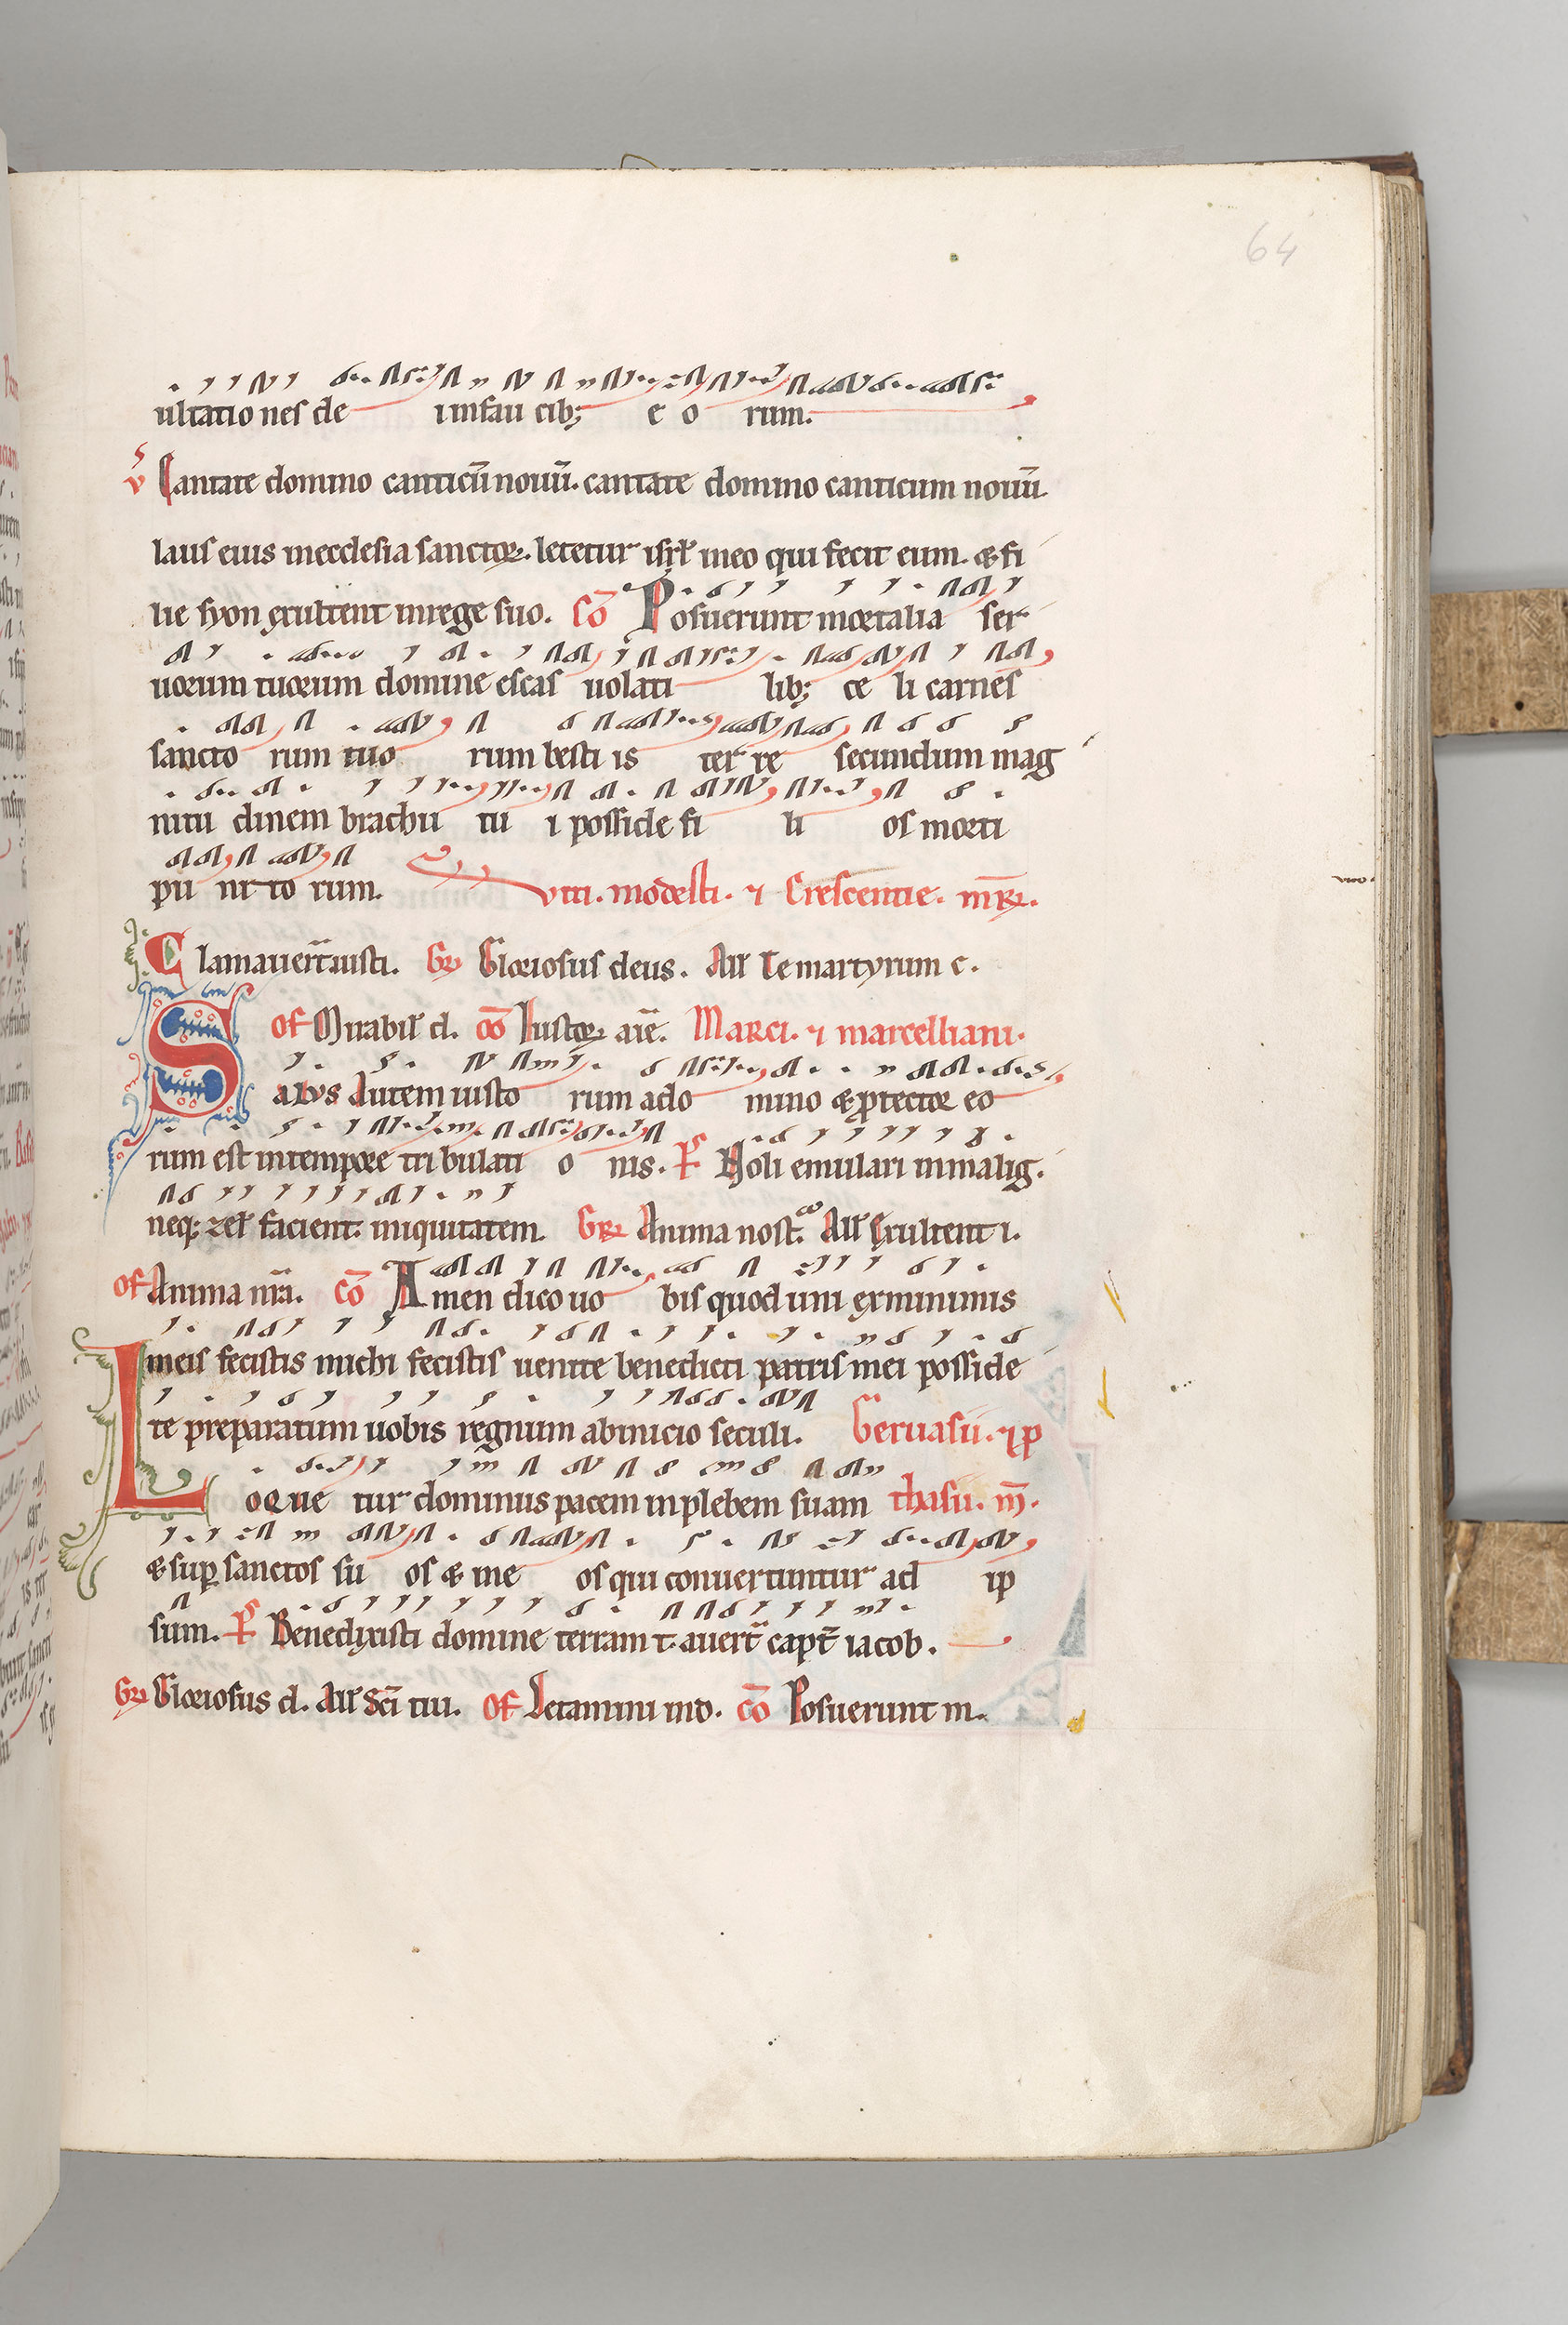 64
ultatio nes de i infau cib; e o rum.
v Cantate domino canticū nouū. cantate domino canticum nouū.
laus eius inecclesia sanctoꝝ. letetur isrl̓ ineo qui fecit eum. & fi
lie syon exultent inrege suo. Cō Posuerunt mortalia ser
uorum tuorum domine escas uolati lib; ce li carnes
sancto rum tuo rum besti is ter re secundum mag
nitu dinem brachii tu i posside fi li os morti
pu ni to rum. Viti. modesti. ⁊ Crescentie. mrꝝ.
Clamauerūt iusti. Gr̃ Gloriosus deus. All̓ Te martyrum c.
Of Mirabil̓ d. Cō Iustoꝝ aīe. Marci. ⁊ marcelliani.
Salvs Autem iusto rum ado mino & protector eo
rum est intempore tri bulati o nis. Ps Noli emulari inmalig.
neq; zel̓ facient. iniquitatem. Gr̃ Anima nost. All̓ Exultent i.
Of Anima nr̄a. Cō Amen dico uo bis quod uni exminimis
meis fecistis michi fecistis uenite benedicti patris mei posside
te preparatum uobis regnum abinicio seculi. Geruasii. ⁊ p
Loque tur dominus pacem inplebem suam thasii. m̄.
& sup sanctos su os & ine os qui conuertuntur ad ip
sum. Ps Benedixisti domine terram t. auert̄ capt̄ iacob.
Gr̃ Gloriosus d. All̓ Sc̄i tui. Of Letamini ind. Cō Posuerunt m.